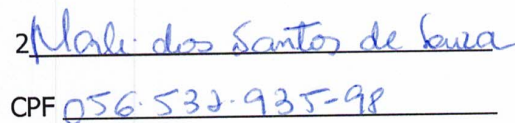 2 Marli dos Santos de Souza
CPF 056.532.935-98